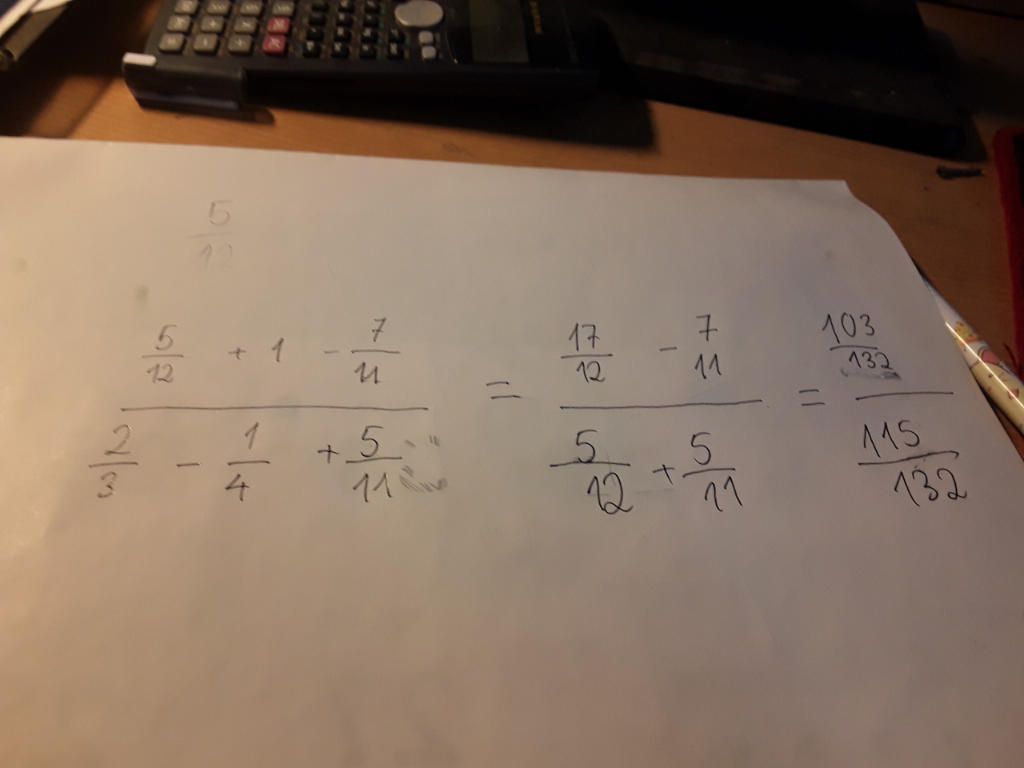 5/12
(5/12 + 1 - 7/11) / (2/3 - 1/4 + 5/11) = (17/12 - 7/11) / (5/12 + 5/11) = (103/132) / (115/132)